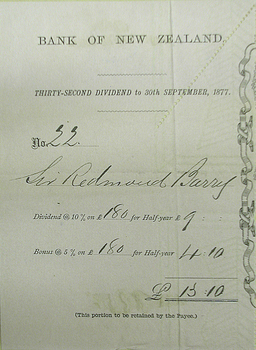 BANK OF NEW ZEALAND.
THIRTY-SECOND DIVIDEND to 30th SEPTEMBER, 1877.
No. 22.
Sir Redmond Barry
Dividend @ 10 % on £ 180 for Half-year £ 9 :
Bonus @ 5 % on £ 180 for Half-year 4 . 10
£ 13 . 10
(This portion to be retained by the Payee.)